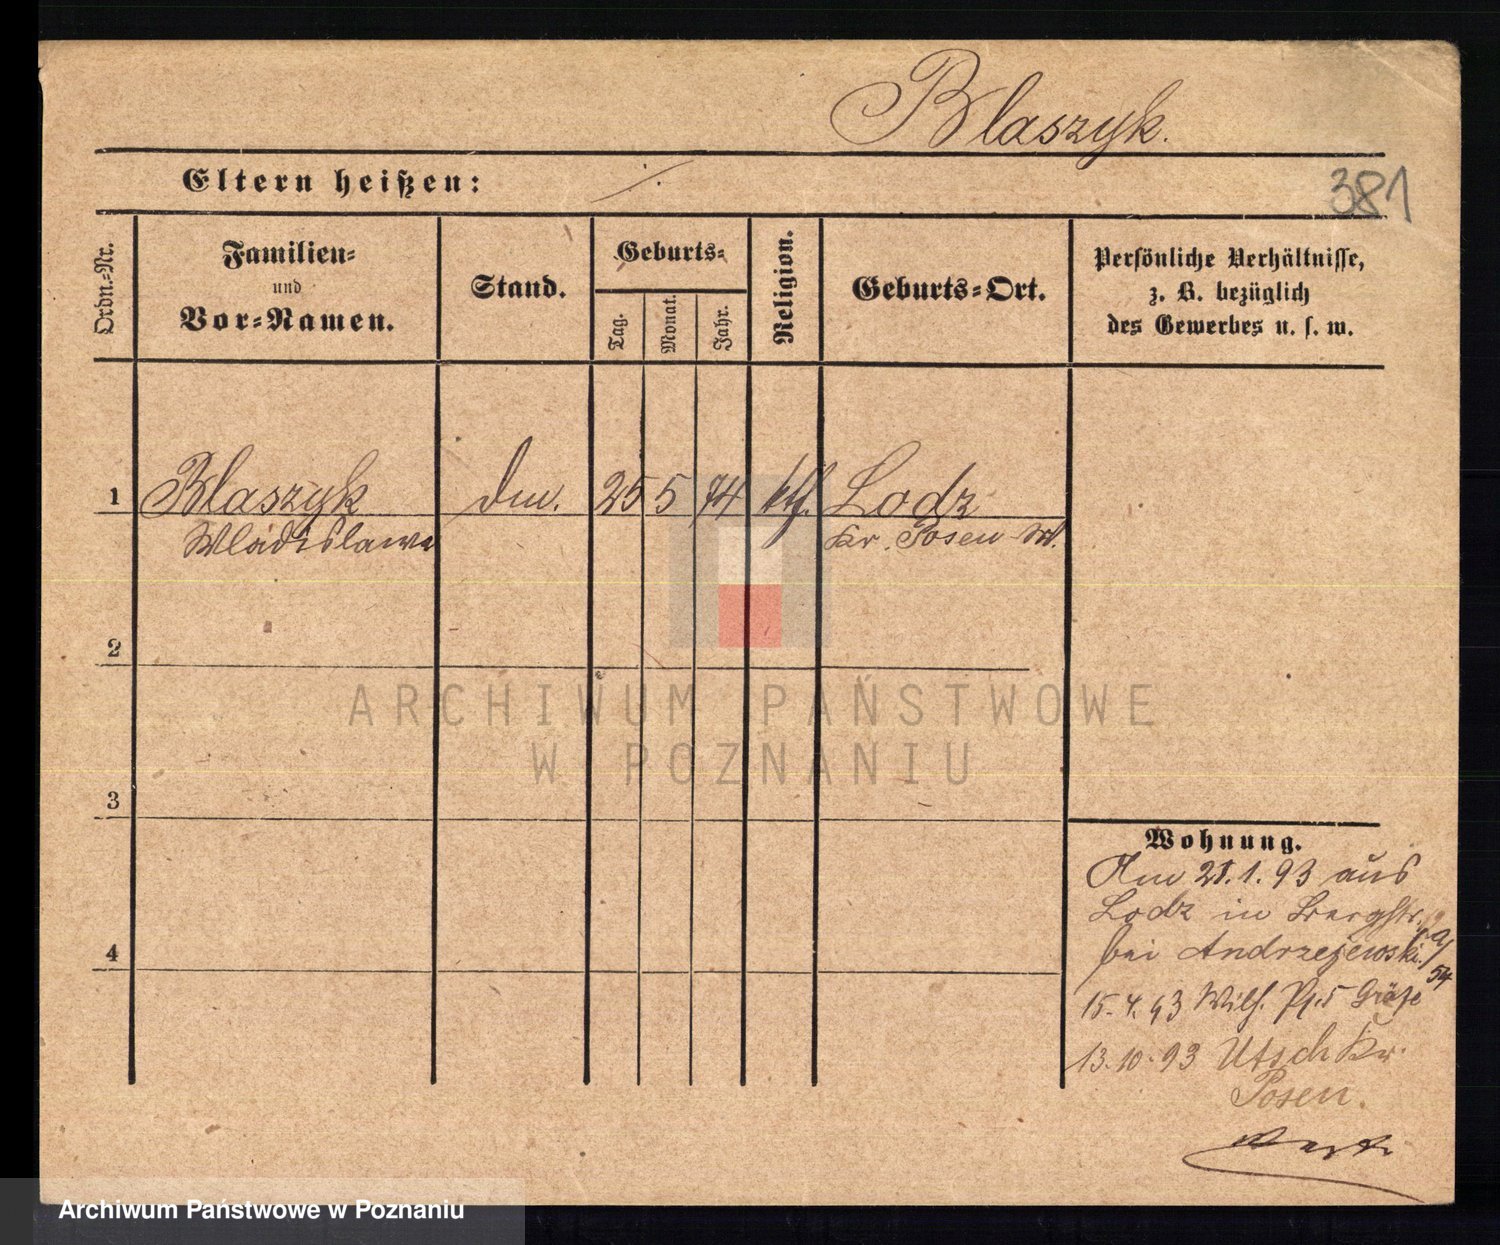 Blaszyk.
Eltern heißen: ./.
381
Ordn.=Nr.
Familien=
und
Vor=Namen.
Stand.
Geburts=
Tag.
Monat.
Jahr.
Religion.
Geburts=Ort.
Persönliche Verhältnisse,
z. B. bezüglich
des Gewerbes u. s. w.
1 Blaszyk 25 5 74 ktf. Lodz
Wladislawa Kr. Posen W.
2
3
4
Wohnung.
Am 21.1.93 aus
Lodz in
bei Andrzejewski
15.4.93 Wilh. Pl. 5 Gräfe
13.10.93 Utsch Kr.
Posen.
ARCHIWUM PAŃSTWOWE
W POZNANIU
Archiwum Państwowe w Poznaniu